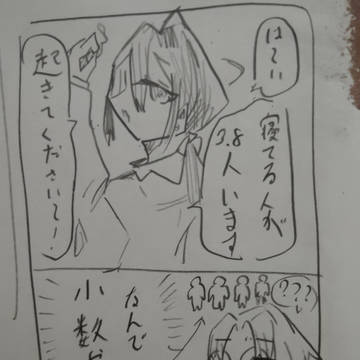 はーい
寝てる人が
3.8
人います
起きてくださいー!
???
なんで
小数